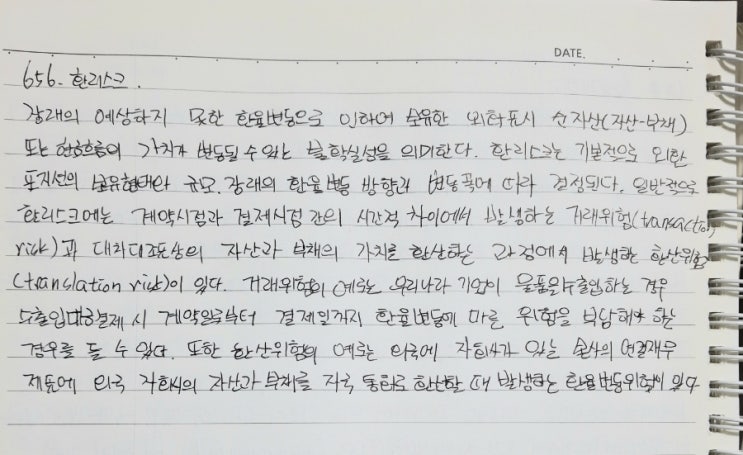 DATE.
656. 환리스크.
장래의 예상하지 못한 환율변동으로 인하여 보유한 외화표시 순자산(자산-부채)
또는 현금흐름의 가치가 변동될 수 있는 불확실성을 의미한다. 환리스크는 기본적으로 외환
포지션의 보유형태와 규모, 장래의 환율변동 방향과 변동폭에 따라 결정된다. 일반적으로
환리스크에는 계약시점과 결제시점 간의 시간적 차이에서 발생하는 거래위험(transaction
risk)과 대차대조표상의 자산과 부채의 가치를 환산하는 과정에서 발생하는 환산위험
(translation risk)이 있다. 거래위험의 예로는 우리나라 기업이 물품을 수출입하는 경우
수출입대금 결제 시 계약일로부터 결제일까지 환율변동에 따른 위험을 부담해야 하는
경우를 들 수 있다. 또한 환산위험의 예로는 외국에 자회사가 있는 본사의 연결재무
제표에 외국 자회사의 자산과 부채를 자국 통화로 환산할 때 발생하는 환율변동위험이 있다